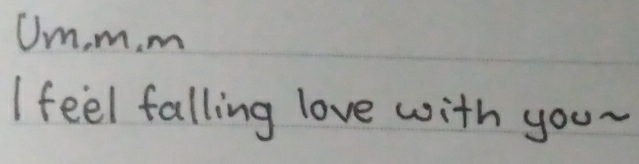 Um.m.m
I feel falling love with you~